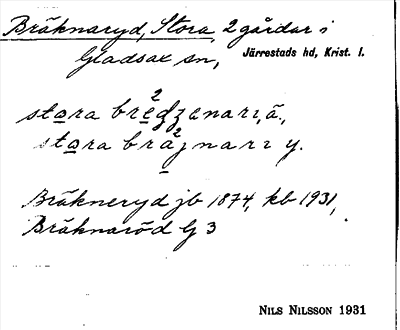 Bräknaryd, Stora, 2 gårdar i
Gladsax sn, Järrestads hd, Krist. l.
stara bre²dzenarı, ä.,
stara bra²jnarı y.
Bräkneryd jb 1874, kb 1931,
Bräknaröd G 3
NILS NILSSON 1931